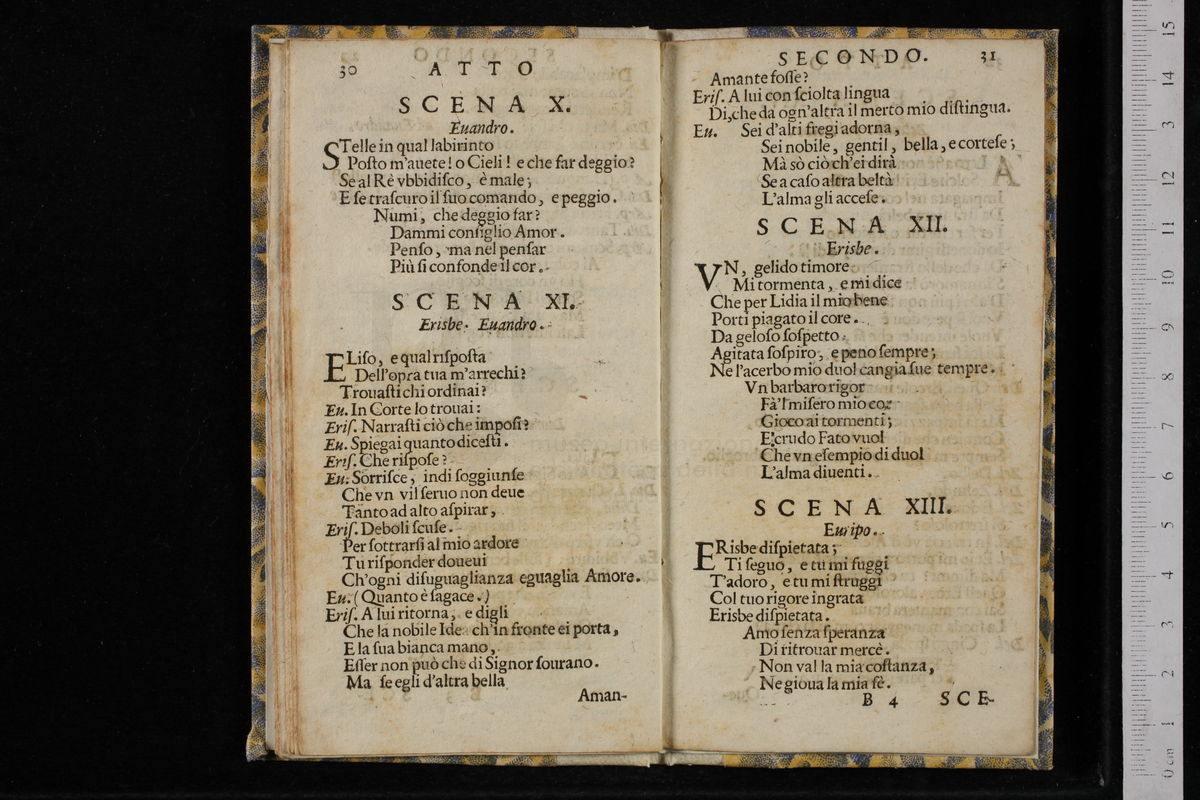 30 ATTO
SCENA X.
Euandro.
STelle in qual labirinto
Posto m'auete! o Cieli! e che far deggio?
Se al Rè vbbidisco, è male;
E se trascuro il suo comando, e peggio.
Numi, che deggio far?
Dammi consiglio Amor.
Penso, ma nel pensar
Più si confonde il cor.
SCENA XI.
Erisbe. Euandro.
ELiso, e qual risposta
Dell'opra tua m'arrechi?
Trouasti chi ordinai?
Eu. In Corte lo trouai:
Eris. Narrasti ciò che imposi?
Eu. Spiegai quanto dicesti.
Eris. Che rispose?
Eu. Sorrisce, indi soggiunse
Che vn vil seruo non deue
Tanto ad alto aspirar,
Eris. Deboli scuse.
Per sottrarsi al mio ardore
Tu risponder doueui
Ch'ogni disuguaglianza eguaglia Amore.
Eu. (Quanto è sagace.)
Eris. A lui ritorna, e digli
Che la nobile Idea ch'in fronte ei porta,
E la sua bianca mano,
Esser non può che di Signor sourano.
Ma se egli d'altra bella
Aman-
SECONDO. 31
Amante fosse?
Eris. A lui con sciolta lingua
Di, che da ogn'altra il merto mio distingua.
Eu. Sei d'alti fregi adorna,
Sei nobile, gentil, bella, e cortese;
Mà sò ciò ch'ei dirà
Se a caso altra beltà
L'alma gli accese.
SCENA XII.
Erisbe.
VN, gelido timore
Mi tormenta, e mi dice
Che per Lidia il mio bene
Porti piagato il core.
Da geloso sospetto
Agitata sospiro, e peno sempre;
Ne l'acerbo mio duol cangia sue tempre.
Vn barbaro rigor
Fà'l misero mio cor
Gioco ai tormenti;
E crudo Fato vuol
Che vn esempio di duol
L'alma diuenti.
SCENA XIII.
Euripo.
ERisbe dispietata;
Ti seguo, e tu mi fuggi
T'adoro, e tu mi struggi
Col tuo rigore ingrata
Erisbe dispietata.
Amo senza speranza
Di ritrouar mercè.
Non val la mia costanza,
Ne gioua la mia fè.
B 4 SCE-
0 cm 1 2 3 4 5 6 7 8 9 10 11 12 3 14 15